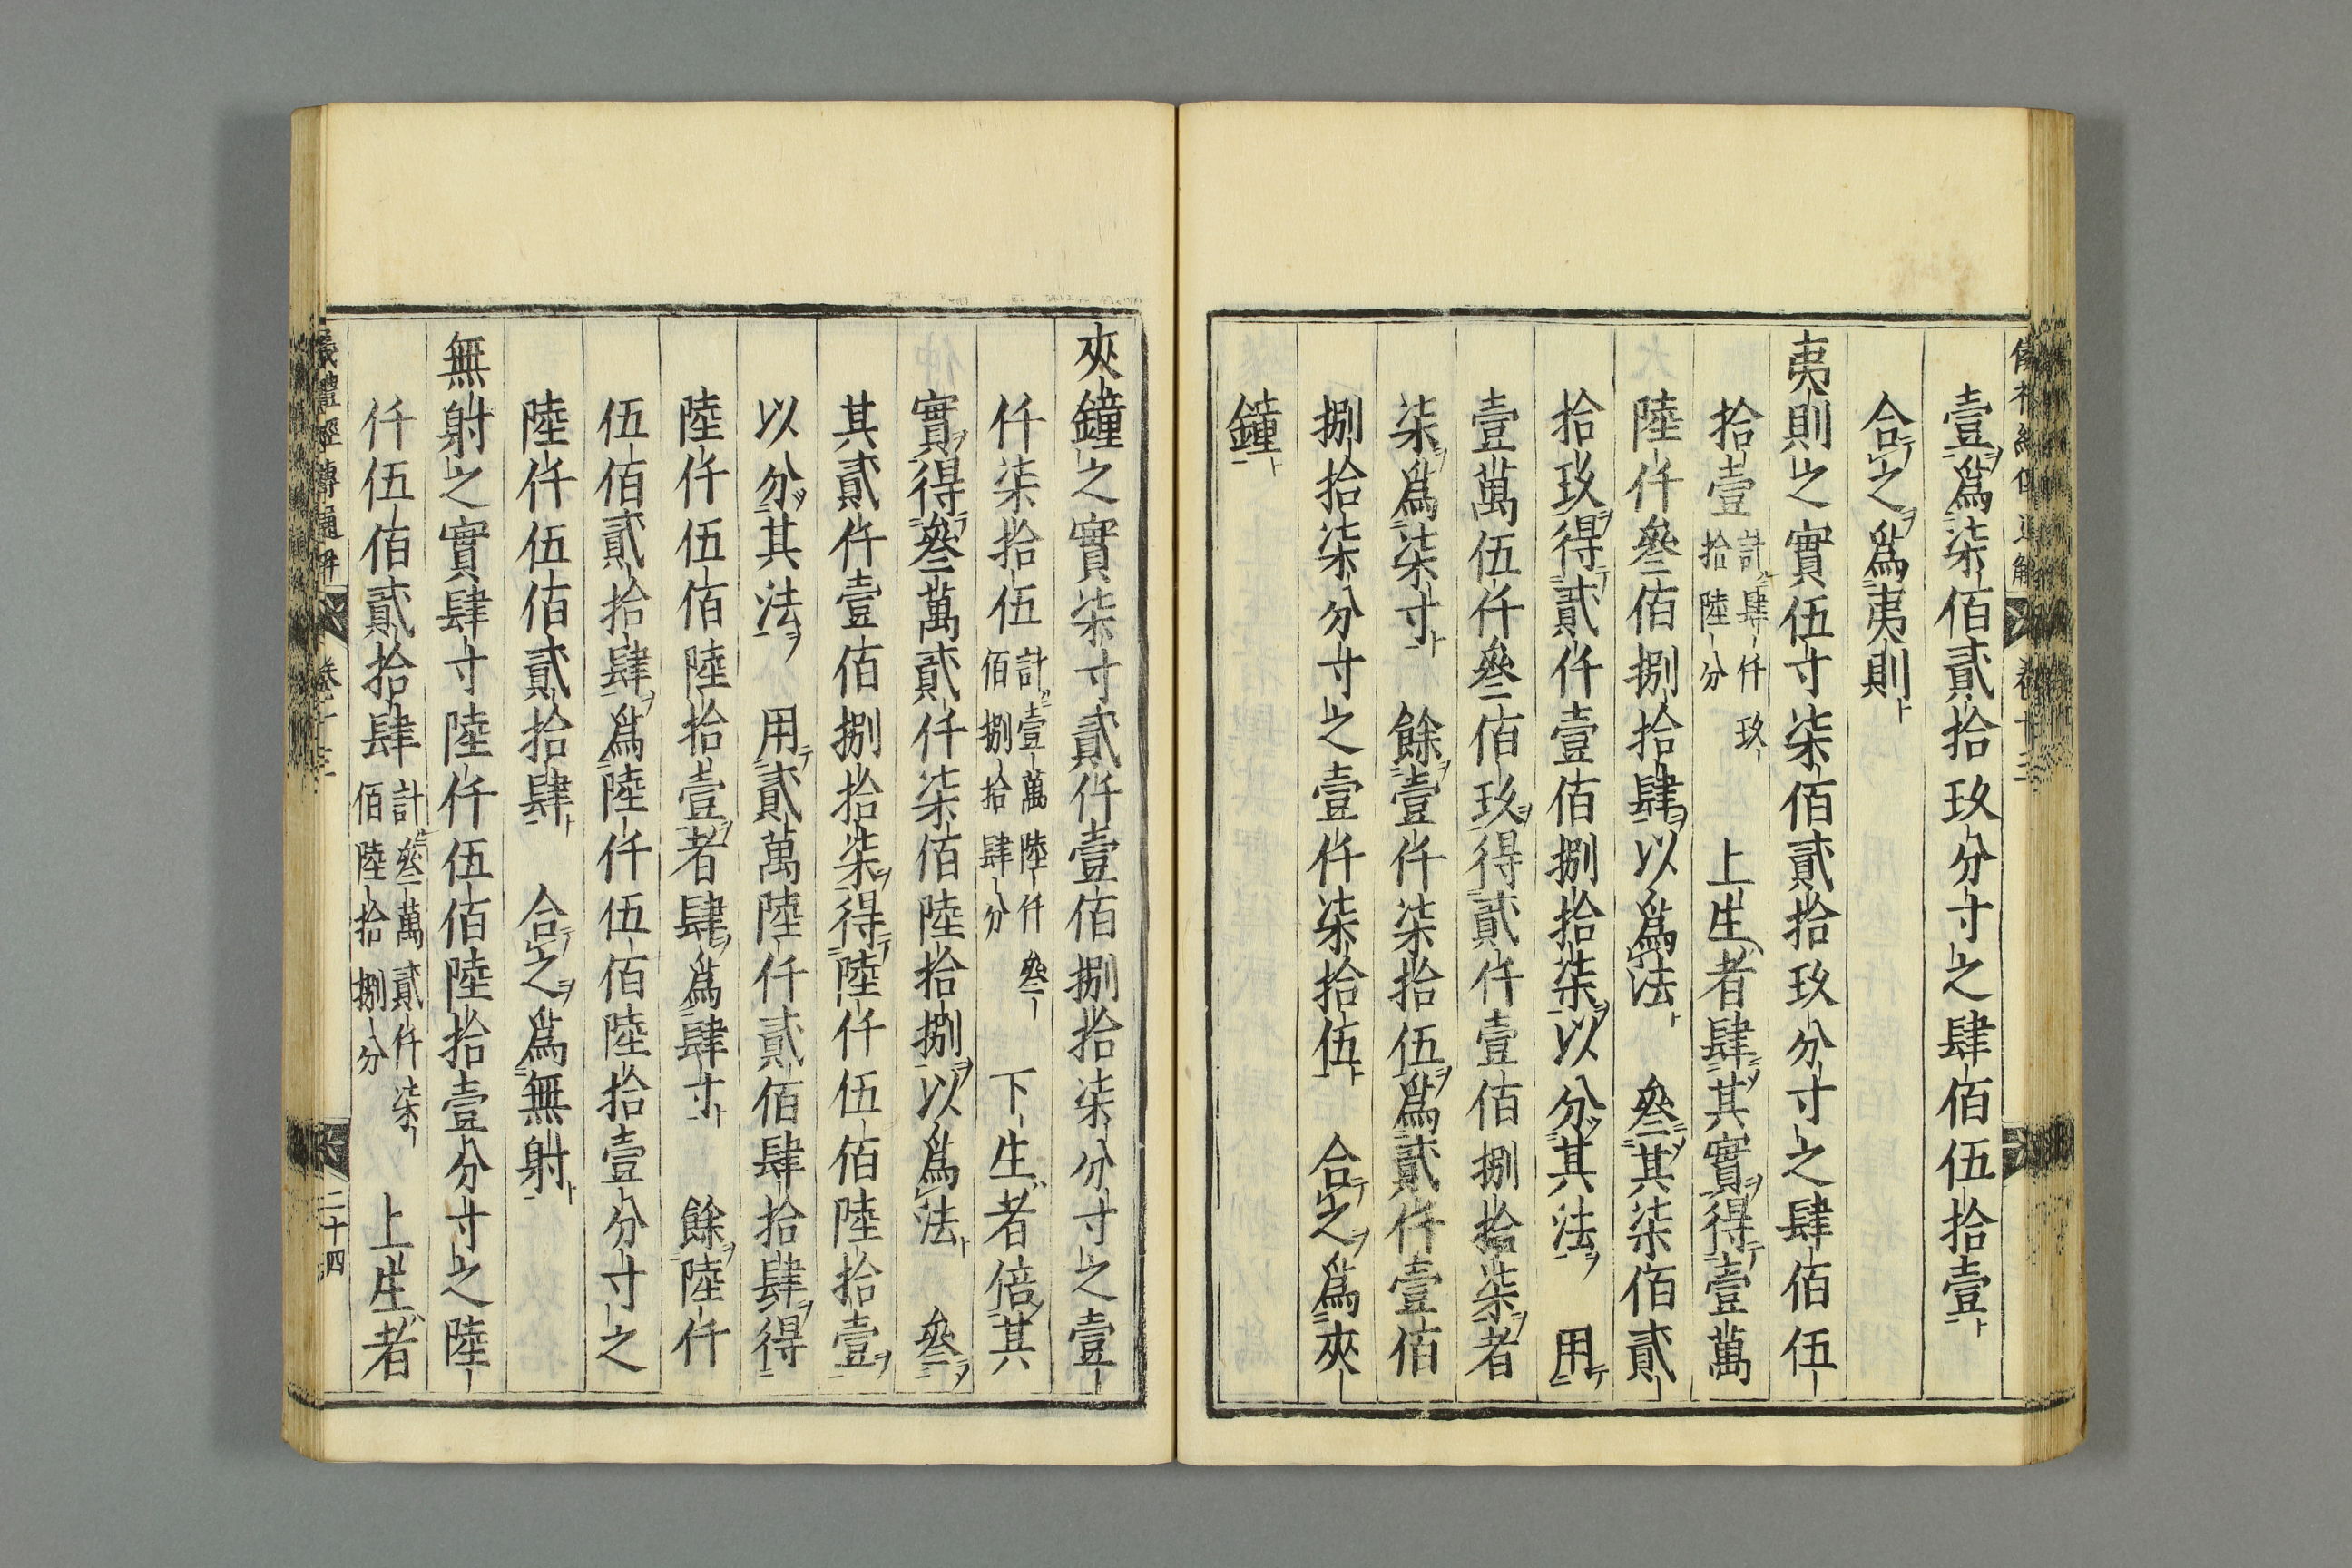 壹爲柒佰貳拾玖分寸之肆佰伍拾壹
合之爲夷則
夷則之實伍寸柒佰貳拾玖分寸之肆佰伍
拾壹計肆仟玖拾陸分上生者肆其實得壹萬
陸仟叄佰捌拾肆以爲法叄其柒佰貳
拾玖得貳仟壹佰捌拾柒以分其法用
壹萬伍仟叄佰玖得貳仟壹佰捌拾柒者
柒爲柒寸餘壹仟柒拾伍爲貳仟壹佰
捌拾柒分寸之壹仟柒拾伍合之爲夾
鐘
夾鐘之實柒寸貳仟壹佰捌拾柒分寸之壹
仟柒拾伍計壹萬陸仟叄佰捌拾肆分下生者倍其
實得叄萬貳仟柒佰陸拾捌以爲法叄
其貳仟壹佰捌拾柒得陸仟伍佰陸拾壹
以分其法用貳萬陸仟貳佰肆拾肆得
陸仟伍佰陸拾壹者肆爲肆寸餘陸仟
伍佰貳拾肆爲陸仟伍佰陸拾壹分寸之
陸仟伍佰貳拾肆合之爲無射
無射之實肆寸陸仟伍佰陸拾壹分寸之陸
仟伍佰貳拾肆計叄萬貳仟柒佰陸拾捌分上生者
儀禮經傳通解
卷十三
二十四